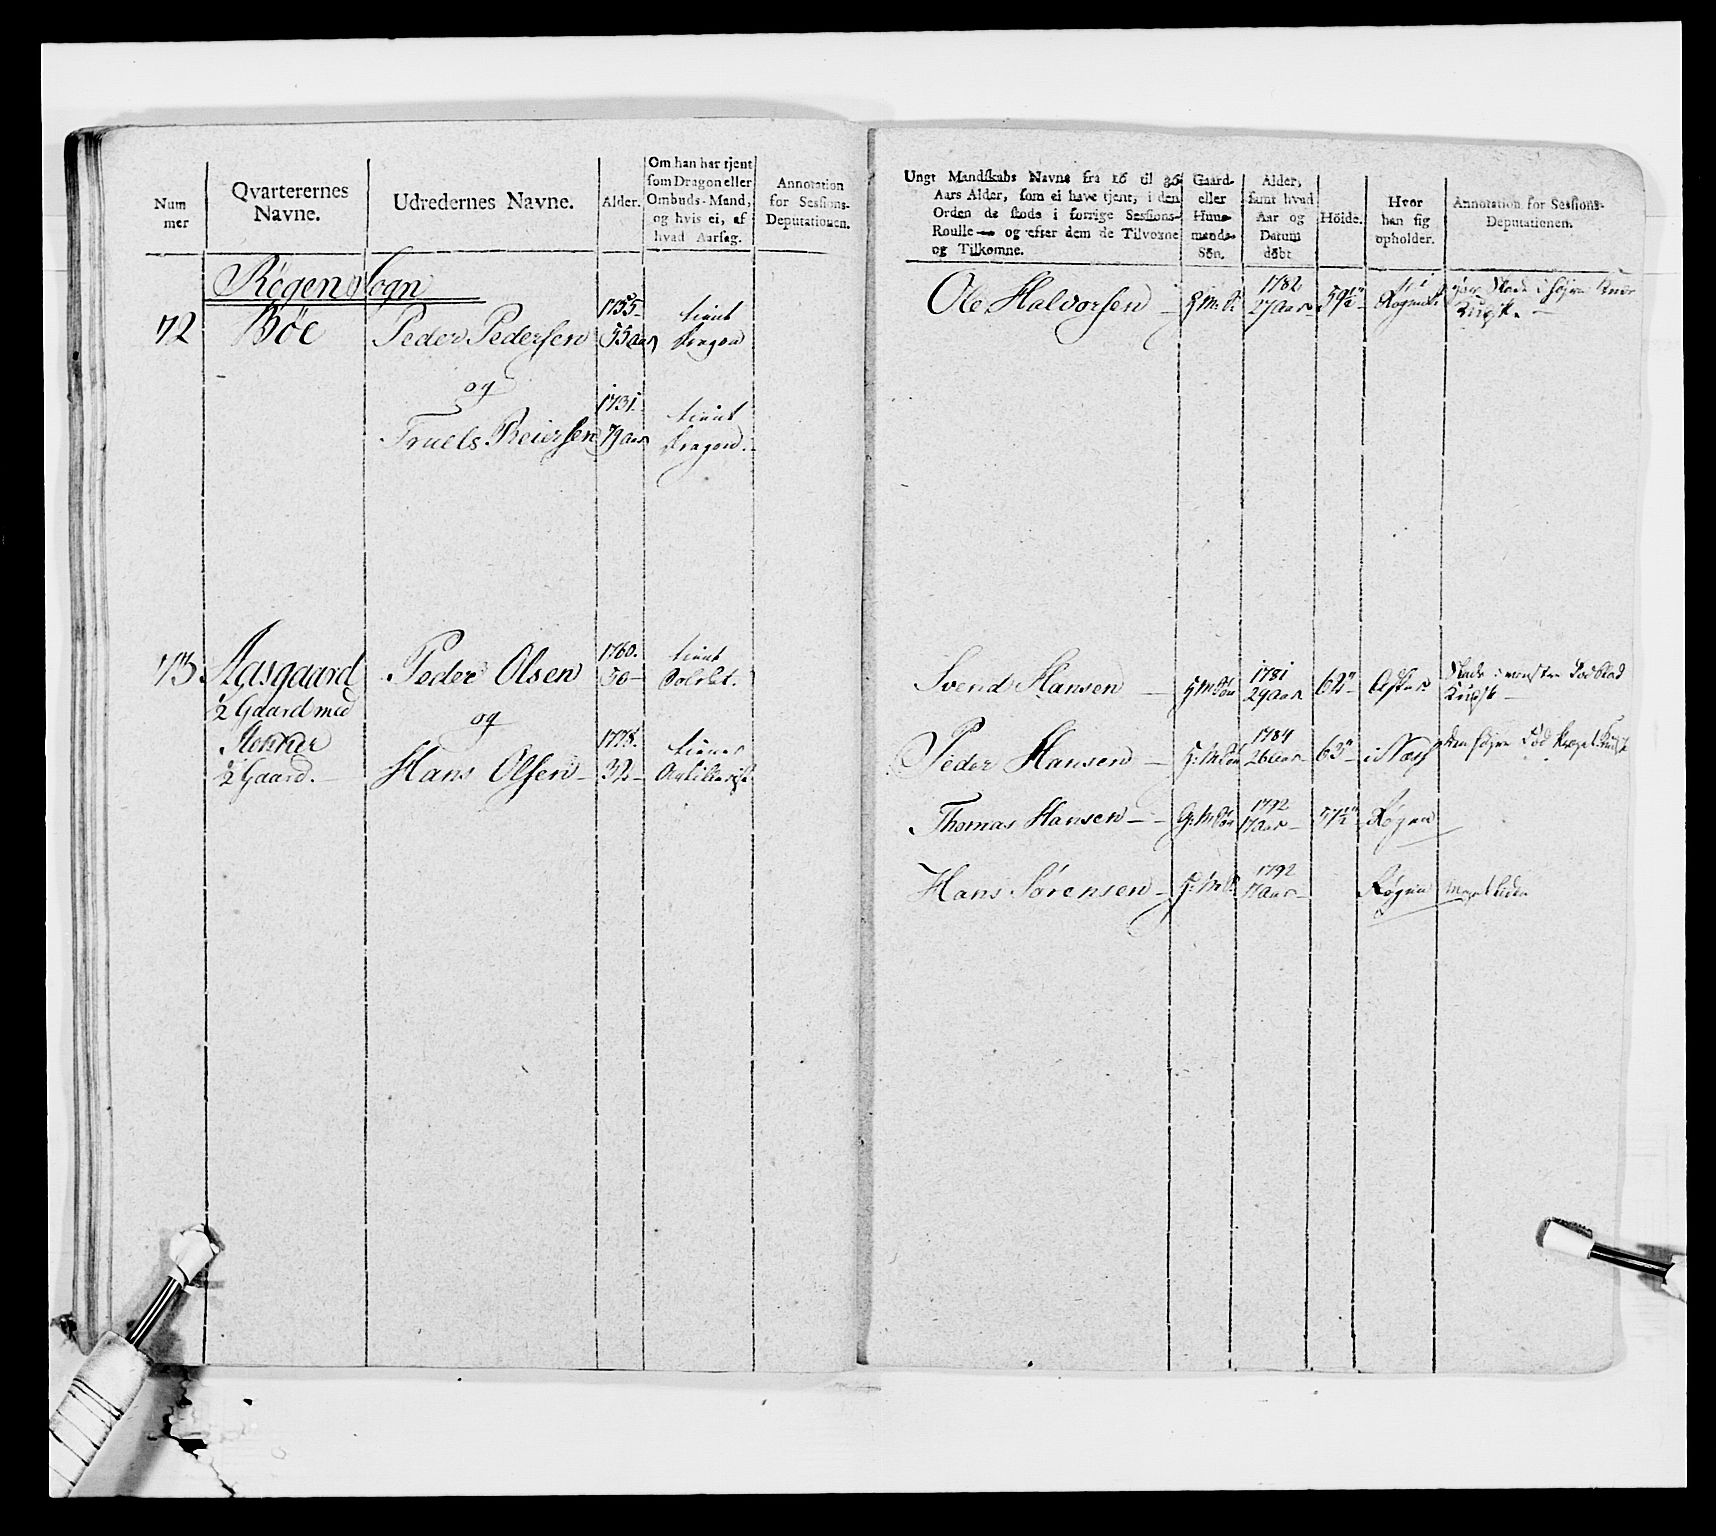 Num
mer
Qvarterernes
Navne.
Udredernes Navne.
Alder.
Om han har tjent
som Dragon eller
Ombuds-Mand,
og hvis ei, af
hvad Aarsag.
Annotation
for Sessions-
Deputationen.
Røgen Sogn
72 Bøe Peder Pedersen
1755
55 Aar
tient
Dragon
og
Truels Reiersen
1731.
79 Aar
tient
Dragon.
73 Aasgaard
½ Gaard med
½ Gaard.
Peder Olsen
1760.
50
tient
Soldat.
og
Hans Olsen
1778.
32
tiener
Artillerist
Ungt Mandskabs Navne fra 16 til 36
Aars Alder, som ei have tjent, i den
Orden de stode i forrige Sessions-
Roulle og efter dem de Tilvoxne
og Tilkomne.
Gaard-
eller
Huus-
mands-
Søn.
Alder,
samt hvad
Aar og
Datum
døbt
Høide.
Hvor
han sig
opholder.
Annotation for Sessions-
Deputationen.
Ole Halvorsen
1782
27 Aar
59½"
Svend Hansen
G:M Søn
1781
29 Aar
62"
Asker
Peder Hansen
G:M Søn
1784
26 Aar
63"
i Næss
Thomas Hansen
G:M Søn
1792
17 Aar
57½"
Røgen
Hans Sørensen
G:M S.
1792
17 Aar
Røgen
meget liden